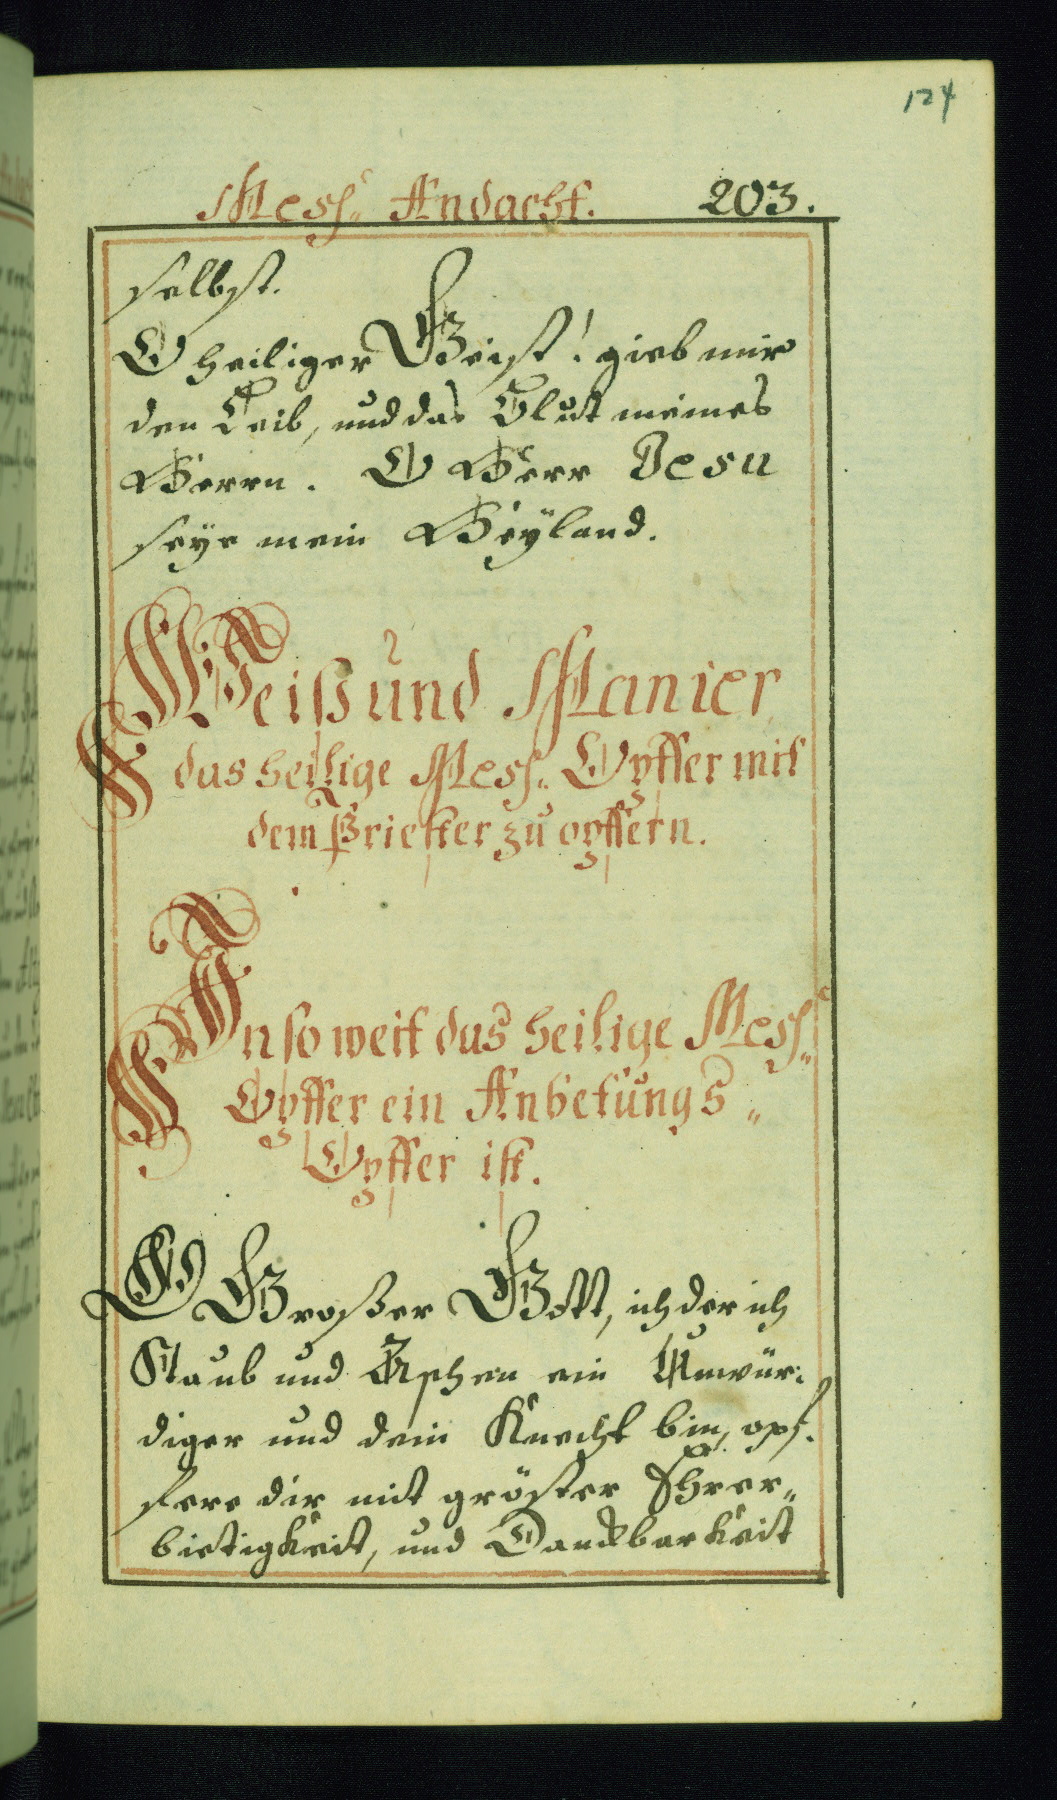 124
Mess„ Andacht. 203.
selbst.
O heiliger Geist! gieb mir
den Leib, und das Blut meines
Herrn. O Herr Jesu
seye mein Heyland.
Weiß und Manier
das heilige Mess„ Opffer mit
dem Priester zu opffern.
In so weit das heilige Mess„
Opffer ein Anbetungs„
Opffer ist.
O Großer Gott, ich der ich
Staub und Aschen ein Unwür:
diger und dein Knecht bin, opf:
fere dir mit gröster Ehrer„
bietigkeit, und Danckbarkeit